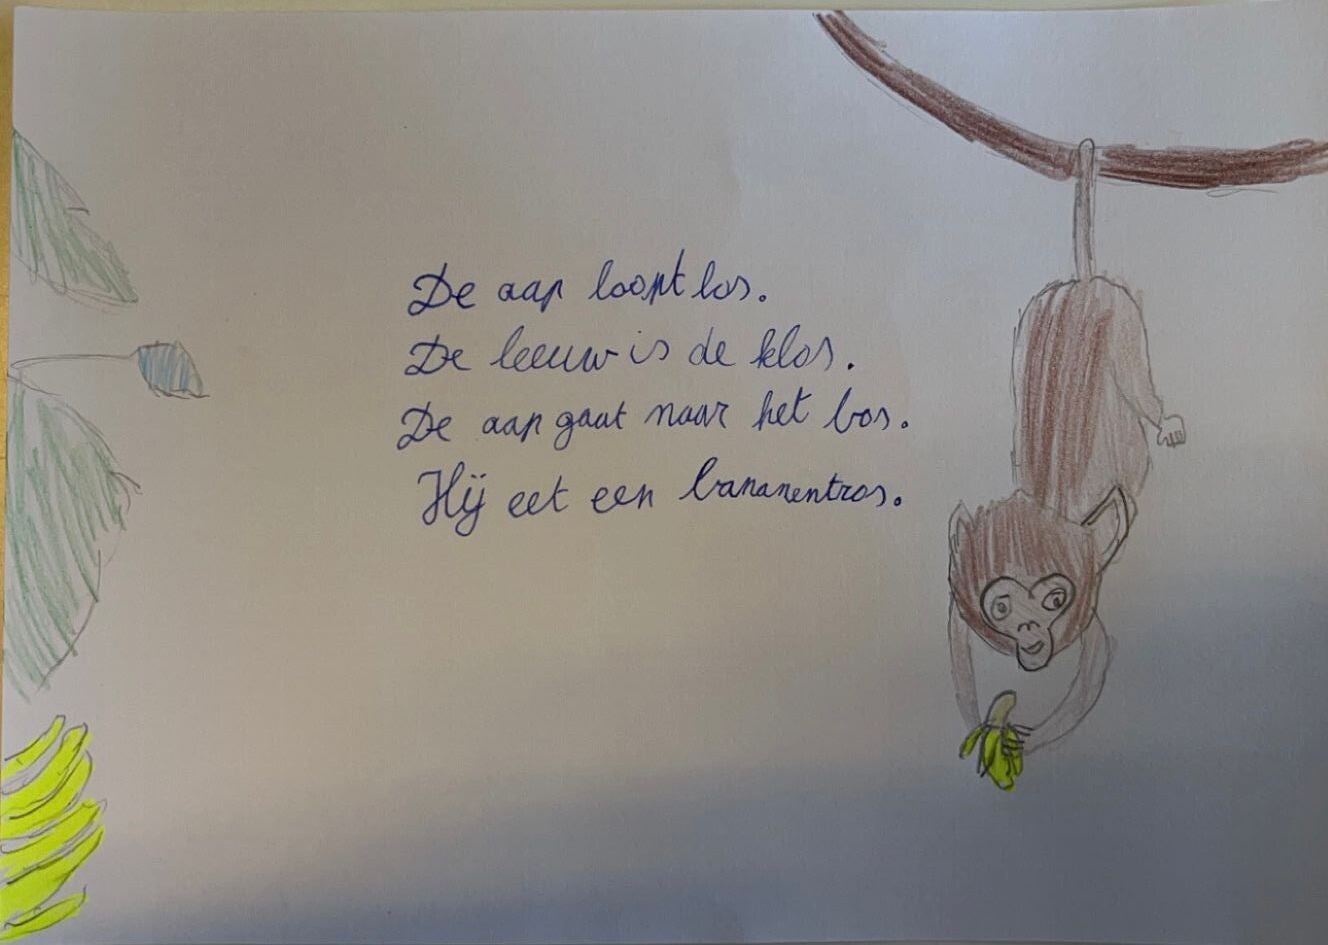 De aap loopt los.
De leeuw is de klos.
De aap gaat naar het bos.
Hij eet een bananentros.